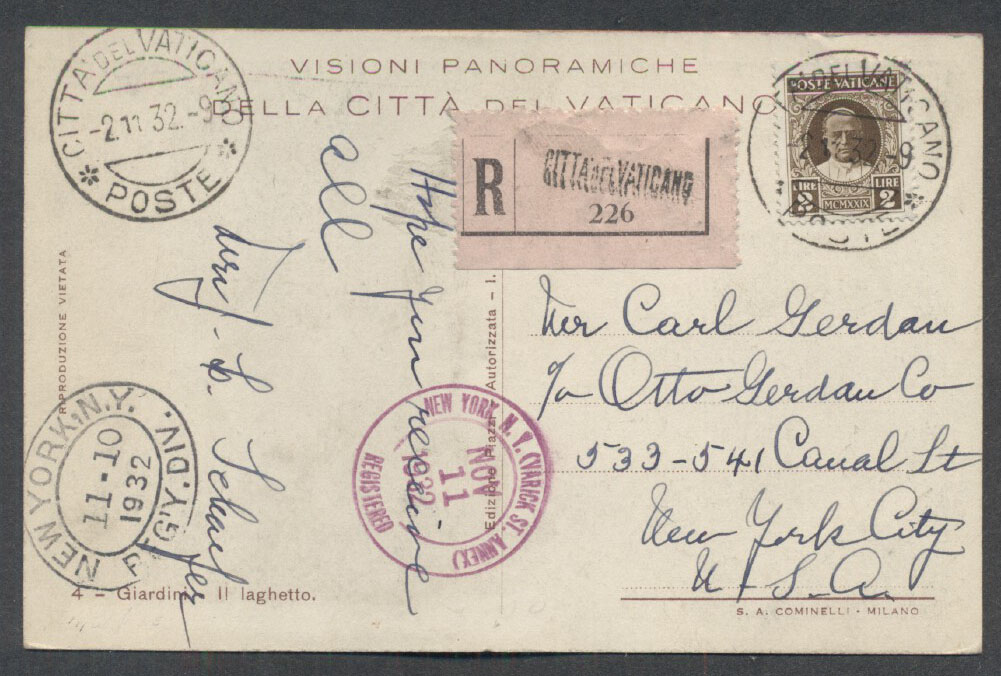 VISIONI PANORAMICHE
DELLA CITTÀ DEL VATICANO
CITTA' DEL VATICANO
-2.11 32.-9
* POSTE *
R
CITTA' DEL VATICANO
226
POSTE VATICANE
LIRE 2
LIRE 2
MCMXXIX
CITTA' DEL VATICANO
-2.11 32.-9
POSTE *
Hope you receive
all
L. Schaufler
Mr Carl Gerdau
c/o Otto Gerdau Co
533-541 Canal St
New York City
U.S.A.
RIPRODUZIONE VIETATA
Edizione Piazzi - Autorizzata - 1.
NEW YORK, N.Y. (VARICK ST. ANNEX)
NOV
11
1932
REGISTERED
NEW YORK, N.Y.
11-10
1932
REG'Y. DIV.
4 - Giardini Il laghetto.
S. A. COMINELLI - MILANO